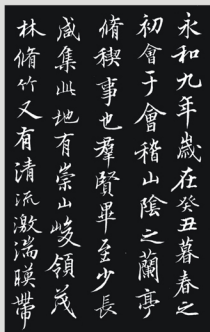 永和九年歲在癸丑暮春之
初會于會稽山陰之蘭亭
脩稧事也羣賢畢至少長
咸集此地有崇山峻領茂
林脩竹又有清流激湍暎帶